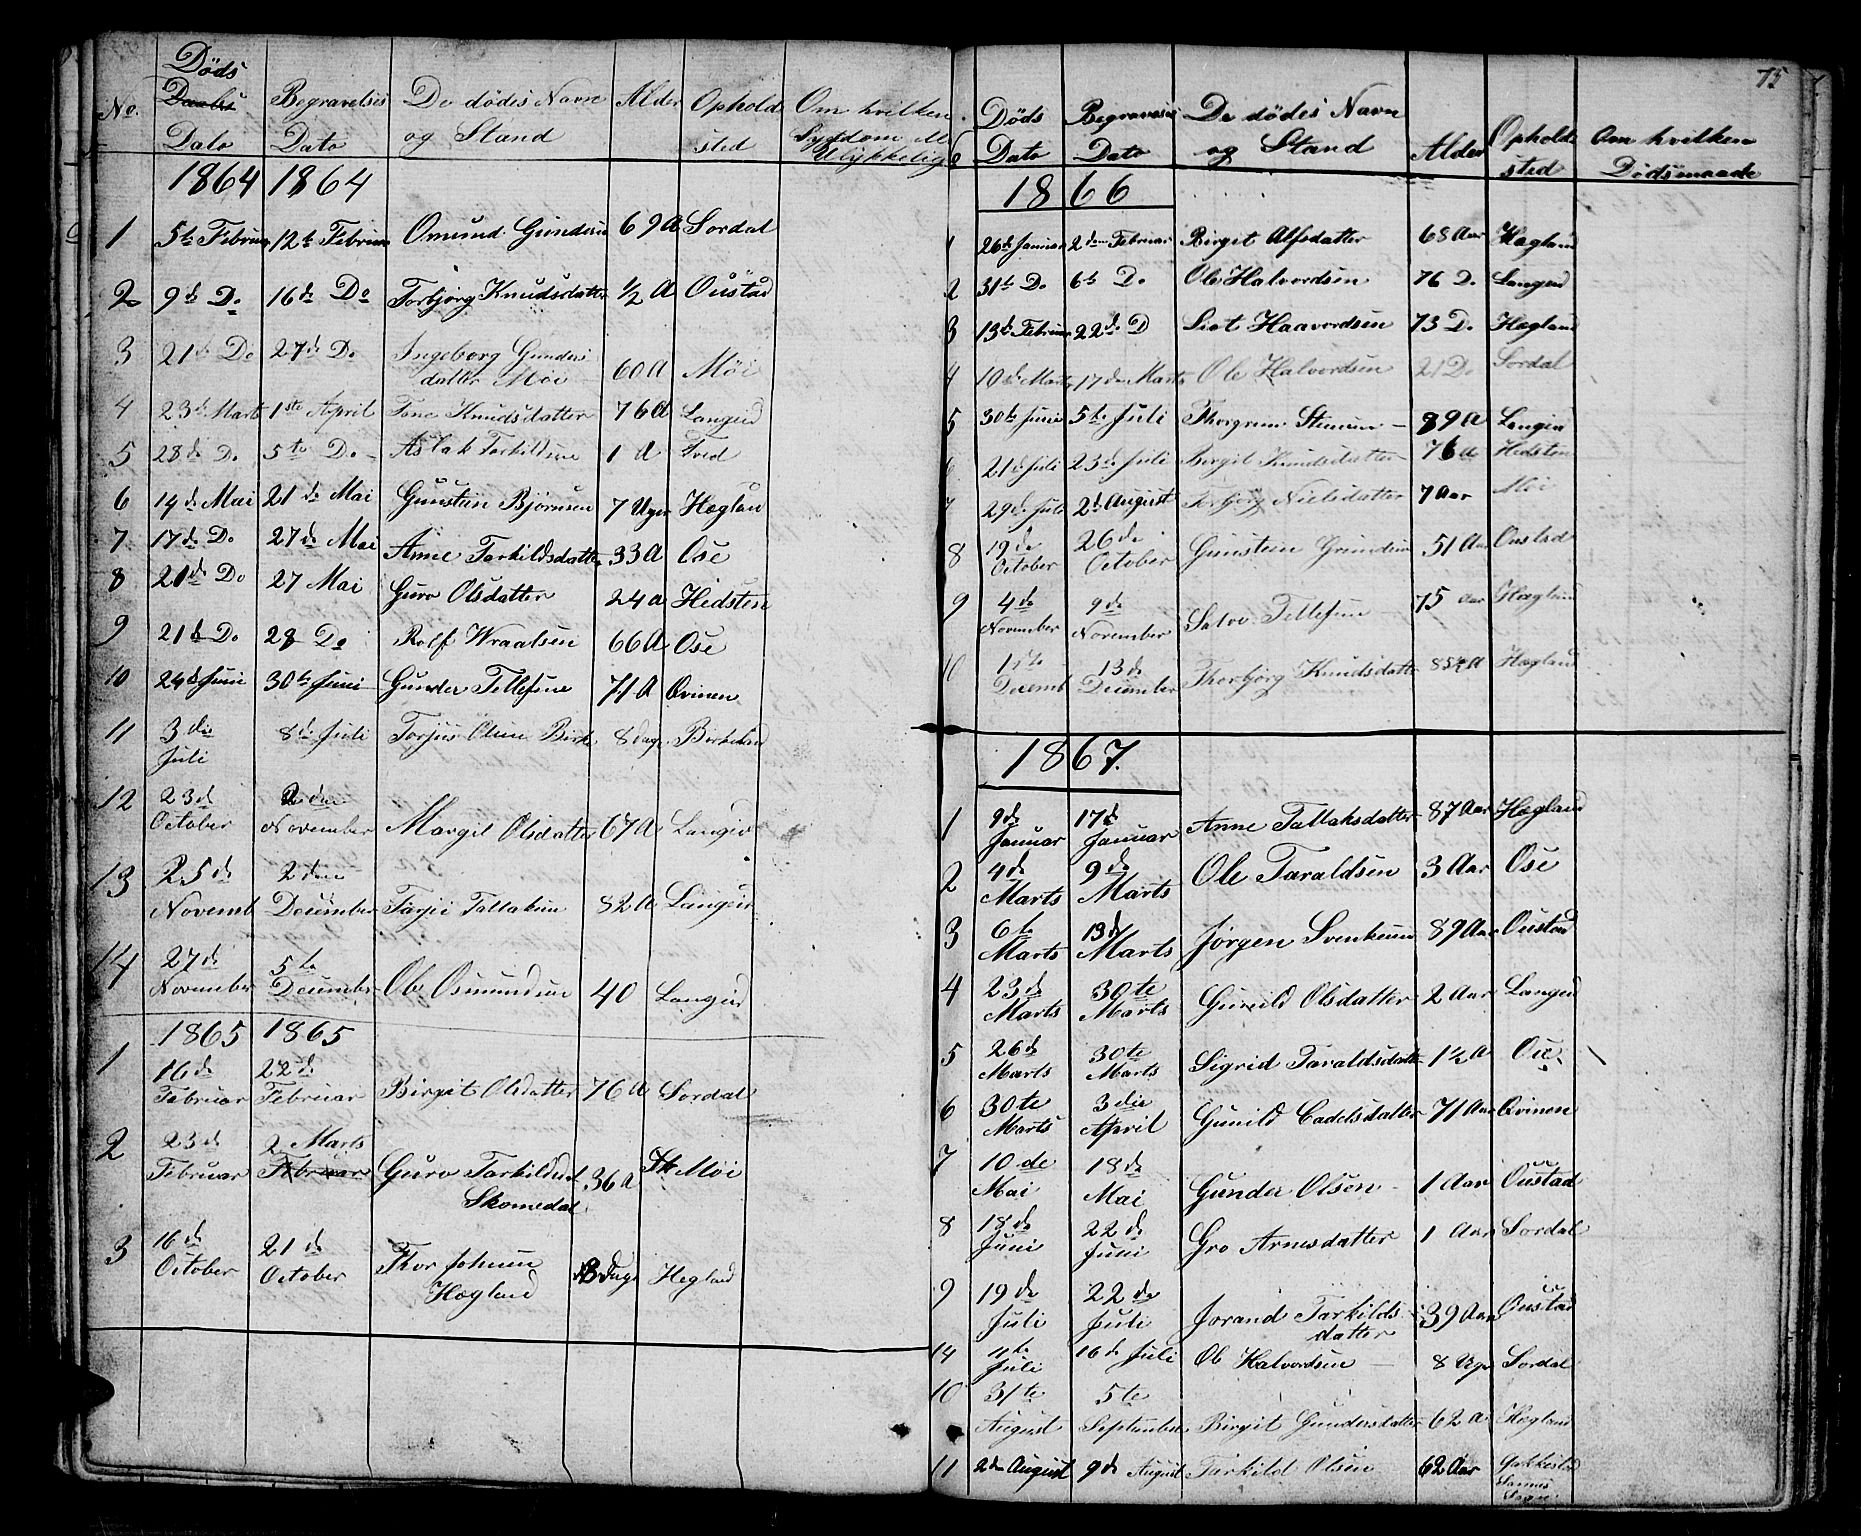 No. Døds Daabs Dato Begravelses Dato De dødes Navn og Stand Alder Ophold sted Om hvilken Sygdom Ulykkelig
1864 1864
1 5te Februar 12te Februar Omund Gundersen 69 A Sordal
2 9de Do 16de Do Torbjørg Knudsdatter 1/2 A Oustad
3 21de Do 27de Do Ingeborg Gunders
datter Möi 60 A Möi
4 23de Marts 1ste April Tone Knudsdatter 76 A Langeid
5 28de Do 5te Do Aslak Tarkildsen 1 A
6 14de Mai 21de Mai Gunstein Bjørnsen 7 Uger Hægland
7 17de Do 27de Mai Anne Tarkildsdatter 33 A Ose
8 21de Do 27 Mai Guro Olsdatter 24 A Hidsten
9 21de Do 28 Do Rolf Wraalsen 66 A Ose
10 24de Juni 30te Juni Gunder Tellefsen 71 A Qvinen
11 3die Juli 8de Juli Torjus Olsen 8 dage
12 23de October 2den November Margit Olsdatter 67 A Langeid
13 25de Novemb 2den December Tarjei Tallaksen 82 A Langeid
14 27de November 5te December Ole Osmundsen 40 Langeid
1865 1865
1 16de Februar 22de Februar Birgit Olsdatter 76 A Sordal
2 23de Februar 2 Marts Februar Guro Tarkildsd
Skomedal 36 A Möi
3 16de October 21de October Thor Johnsen
Hægland Dage Hegland
75
Døds Dato Begravelses Dato De dødes Navn og Stand Alder Opholds sted Om hvilken Dødsmaade
1866
1 26de Januar 2den Februar Birgit Alfsdatter 68 Aar Hægland
2 31te Do 6te Do Ole Halvordsen 76 Do Langeid
3 13de Februar 22de D Liot Haavordsen 73 Do Hægland
4 10de Marts 17de Marts Ole Halvordsen 21 Do Sordal
5 30te Juni 5te Juli Thorgrim 89 A Langeid
6 21de Juli 23de Juli Birgit Knudsdatter 76 A Hidsten
7 29de Juli 2den August Torbjørg Nielsdatter 7 Aar Möi
8 19de October 26de October Gunstein Gundersen 51 Aar Oustad
9 4de November 9de November Salve Tellefsen 75 Aar Hægland
10 Decemb 13de December Thorbjørg Knudsdatter Hægland
1867.
1 9de Januar 17de Januar Anne Tallaksdatter 87 Aar Hægland
2 4de Marts 9de Marts Ole Taraldsen 3 Aar Ose
3 6te Marts 13de Marts Jørgen Svenksen 89 Aar Oustad
4 23de Marts 30te Marts Gunild Olsdatter 2 Aar Langeid
5 26de Marts 30te Marts Sigrid Taraldsdatter 1 1/2 A Ose
6 30te Marts 3die April Gunild Cadelsdatter 71 Aar Qvinen
7 10de Mai 18de Mai Gunder Olsen 1 Aar Oustad
8 18de Juni 22de Juni Gro Arnesdatter 1 Aar Sordal
9 19de Juli 22de Juli Jorand Tarkilds
datter 39 Aar Oustad
14 11te Juli 16de Juli Ole Halvordsen 8 Uger Sordal
10 31te August 5te September Birgit Gundersdatter 62 A Hægland
11 2den August 9de August Tarkild Olsen 62 Aar
Sogn